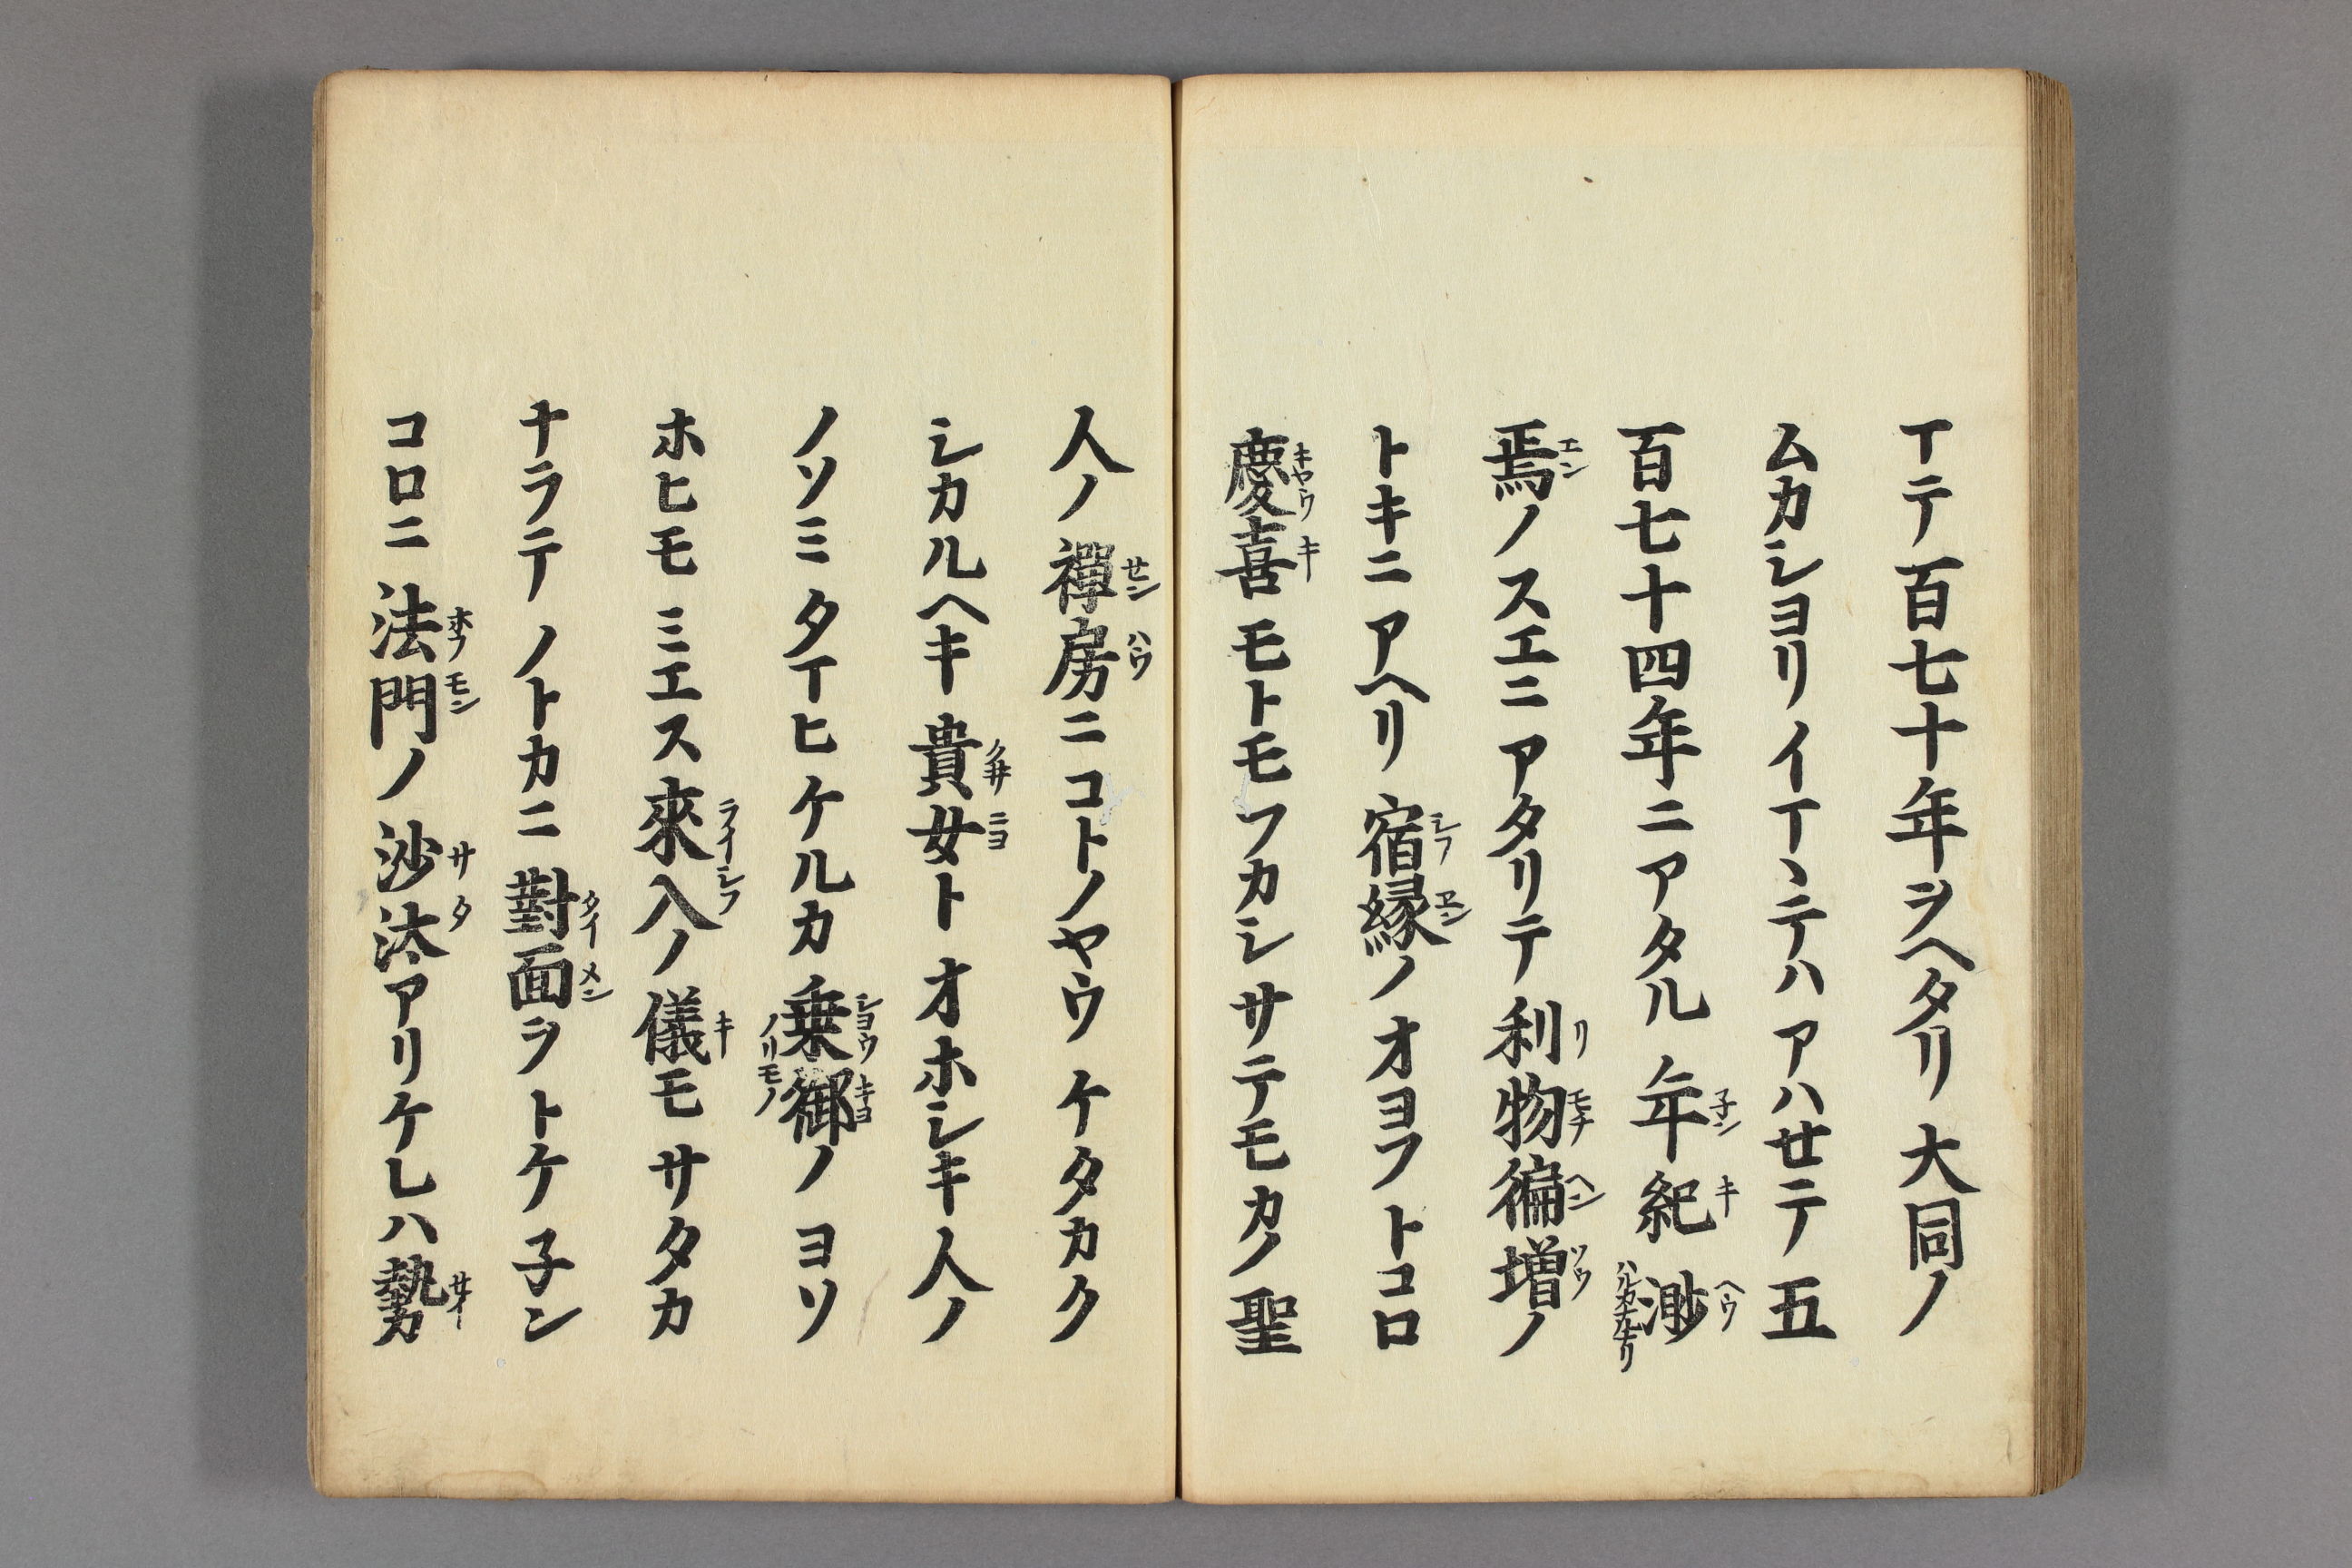 イテ百七十年ヲヘタリ大同ノ
ムカシヨリイイヽテハアハせテ五
百七十四年ニアタル年紀渺
焉ノスエニアタリテ利物徧増ノ
トキニアヘリ宿縁ノオヨフトコロ
慶喜モトモフカシサテモカノ聖
人ノ禪房ニコトノヤウケタカク
シカルヘキ貴女トオホシキ人ノ
ノソミタイヒケルカ乗御ノヨソ
ホヒモミエス來入ノ儀モサタカ
ナラテノトカニ對面ヲトケ子ン
コロニ法門ノ沙汰アリケレハ勢